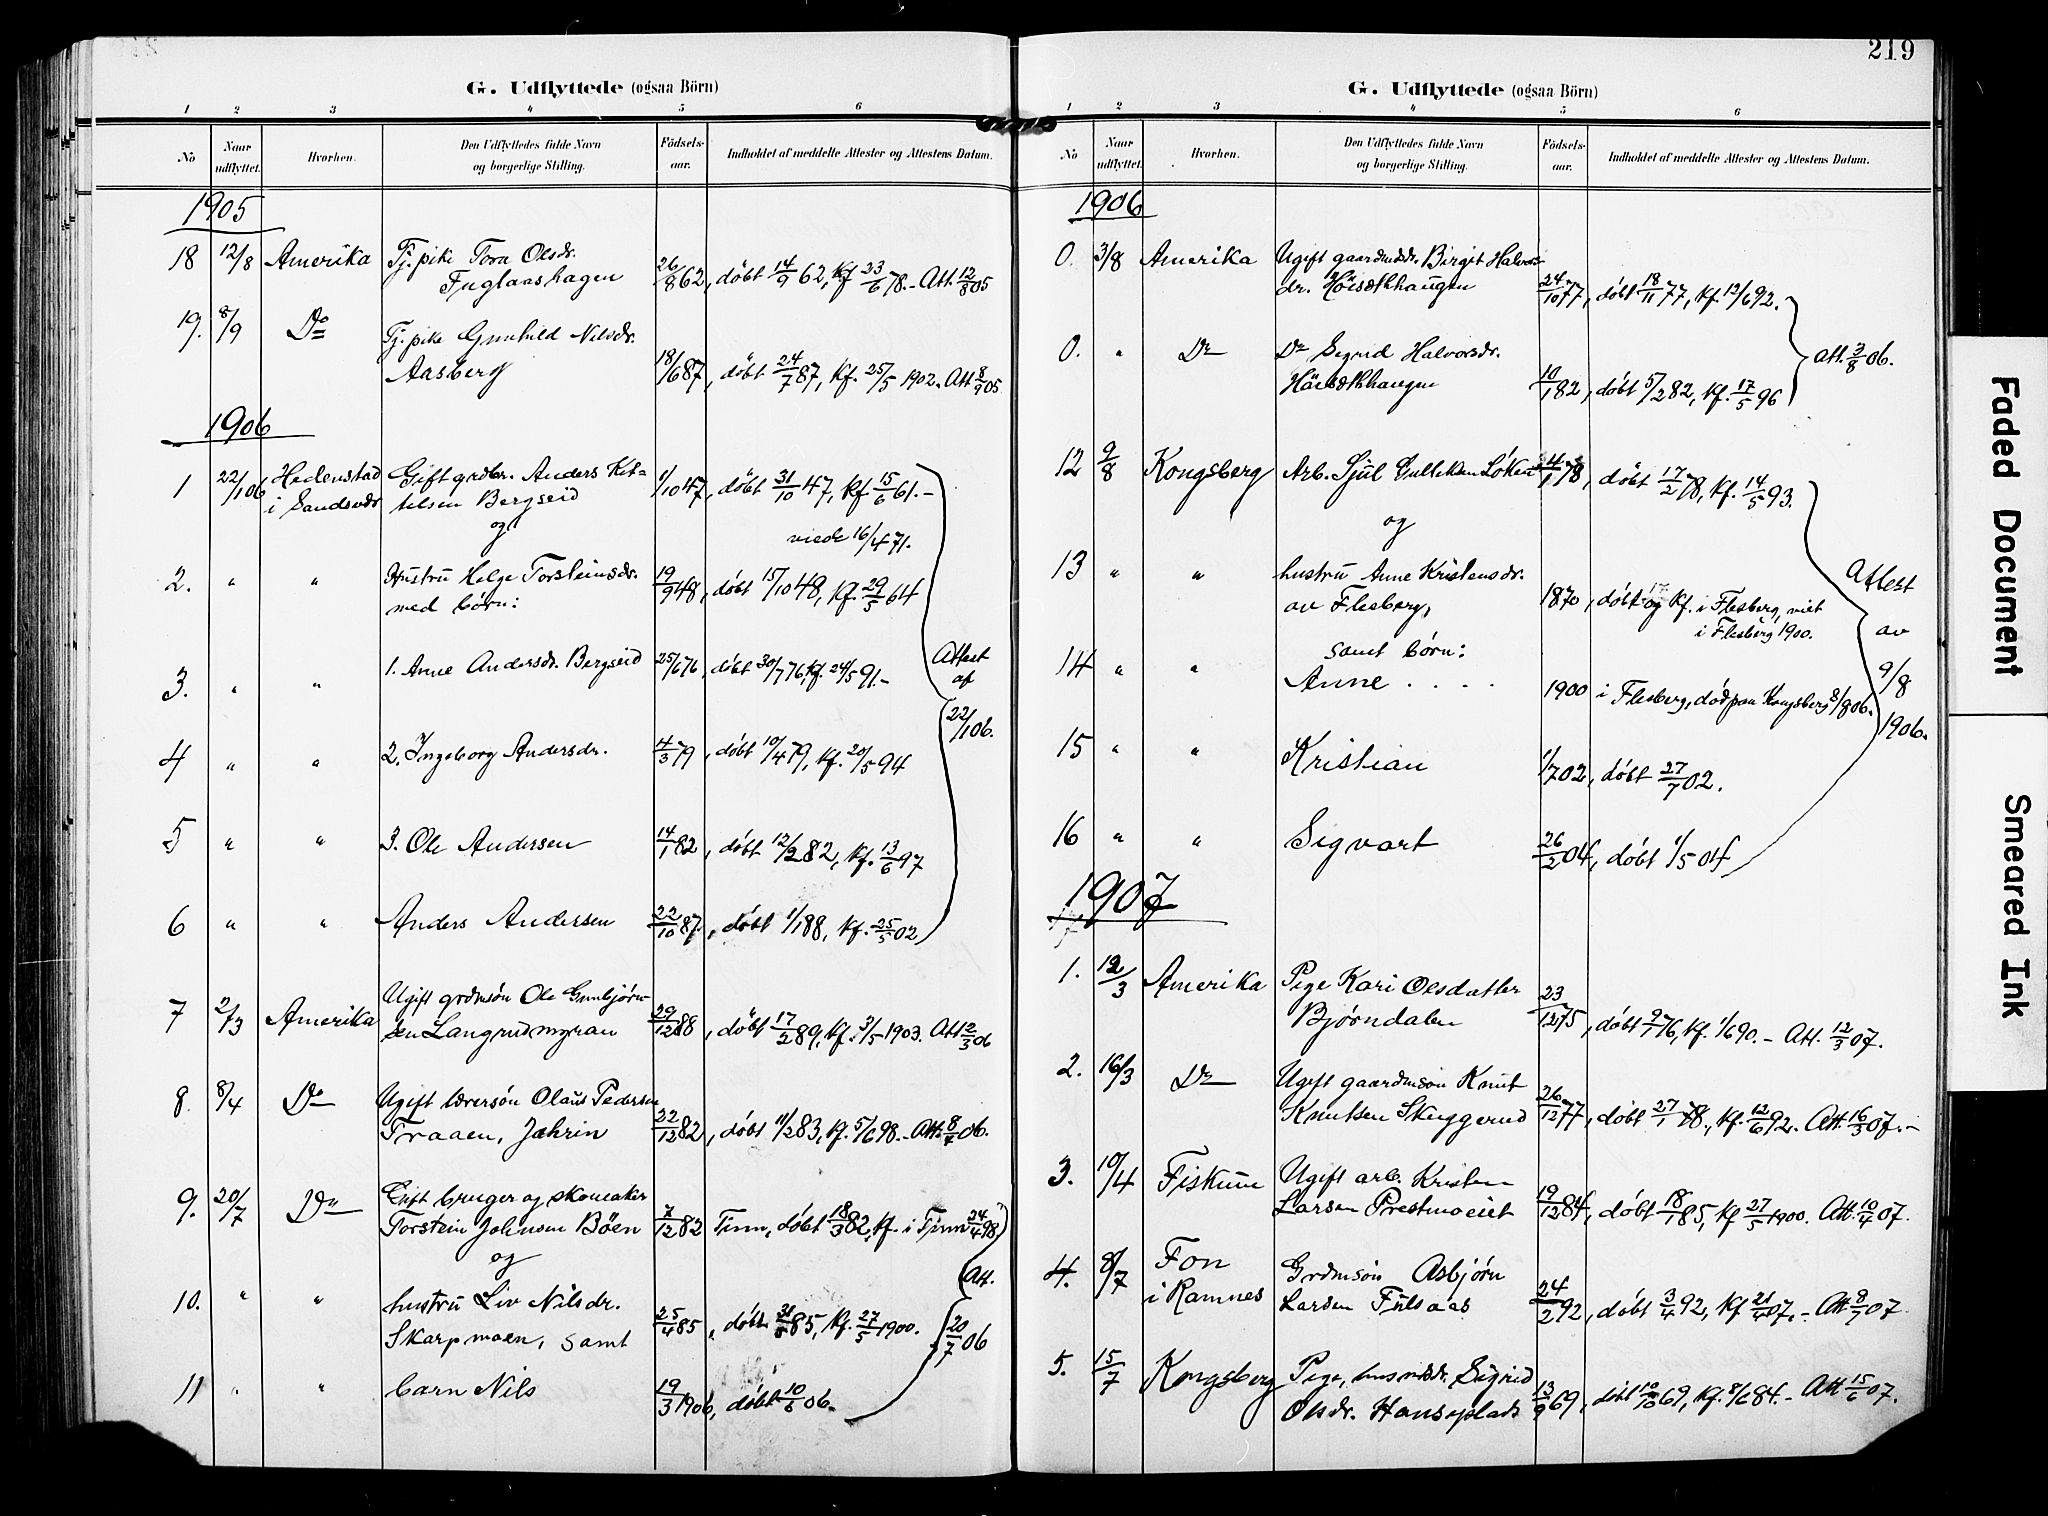 219
G. Udflyttede (ogsaa Börn)
1 2 3 4 5 6
No
Naar udflyttet.
Hvorhen.
Den Udflyttedes fulde Navn
og borgerlige Stilling.
Fødsels-
aar.
Indholdet af meddelte Attester og Attestens Datum.
1905
18 12/8 Amerika Tj. pike Tora Olsdr.
Fuglaashagen 26/8 62, döbt 14/9 62, Kf 23/6 78. - Att. 12/8 05
19. 8/9 Do Tj. pike Gunhild Nilsdr.
Aasberg 18/6 87, döbt 24/7 87, Kf. 25/5 1902. Att 8/9 05
1906
1 22/1 06 Hedenstad Gift grdbr. Anders Kit=
i Sandsvær telsen Bergseid 1/10 47, döbt 31/10 47, Kf 15/6 61. -
og viede 16/4 71.
2. " " Hustru Helge Torsteinsdr. 19/9 48, döbt 15/10 48, Kf. 29/5 64
med börn:
3. " " 1. Anne Andersdr. Bergseid 25/6 76, döbt 30/7 76, Kf. 24/5 91. -
Attest
af
22/1 06.
4 " " 2. Ingeborg Andersdr. 4/3 79, döbt 10/4 79, Kf. 20/5 94
5 " " 3. Ole Andersen 14/1 82, döbt 12/2 82, Kf. 13/6 97
6 " " Anders Andersen 22/10 87, döbt 1/1 88, Kf. 25/5 02
7 2/3 Amerika Ugift grdmsön Ole Gunbjörn-
sen Langrudmyran 29/12 88, döbt 17/2 89, Kf. 3/5 1903. Att 2/3 06
8. 8/4 Do Ugift lærersön Olaus Pedersen
Traaen, Jahrin 22/12 82, döbt 11/2 83, Kf. 5/6 98. - Att. 8/4 06.
9. 20/7 Do Gift bruger og skomaker
Torstein Johnsen Böen 7/12 82 Tinn, döbt 18/3 82, Kf. i Tinn 24/4 98
og
Att.
10. " " hustru Liv Nilsdr.
Skarpmoen, samt 25/4 85, döbt 31/5 85, Kf. 27/5 1900. 20/7 06
11 " " barn Nils 19/3 1906, döbt 10/6 06.
G. Udflyttede (ogsaa Börn)
1 2 3 4 5 6
No
Naar udflyttet.
Hvorhen.
Den Udflyttedes fulde Navn
og borgerlige Stilling.
Födsels-
aar.
Indholdet af meddelte Attester og Attestens Datum.
1906
0. 3/8 Amerika Ugift gaardmdr. Birgit Halvors-
dr. Höisækhaugen 24/10 77, döbt 18/11 77, Kf. 12/6 92.
0. " Do Do Sigrid Halvorsdr.
Höisækhaugen 10/1 82, döbt 5/2 82, Kf. 17/5 96
Att. 3/8 06.
12 9/8 Kongsberg Arb. Sjul Gulliksen Löken 4/1 78, döbt 17/2 78, Kf. 14/5 93.
og
13 " " hustru Anne Kristensdr.
av Flesberg, 1870, döbt og Kf. i Flesberg, viet
i Flesberg 1900.
samt börn:
14 " " Anne . . . . 1900 i Flesberg, död paa Kongsberg 8/8 06.
Attest
av
9/8
1906.
15 " " Kristian 1/7 02, döbt 27/7 02.
16 " " Sigvart 26/2 04, döbt 1/5 04
1907
1. 12/3 Amerika Pige Kari Olsdatter
Bjöondalen 23/12 75, döbt 9/1 76, Kf. 1/6 90. - Att. 12/3 07.
2. 16/3 Do Ugift gaardmsön Knut
Knutsen Skuggerud 26/12 77, döbt 27/1 78, Kf. 12/6 92. Att. 16/3 07. -
3. 10/4 Fiskum Ugift arb. Kristen
Larsen Prestmoeiet 19/12 84, döbt 18/1 85, Kf 27/5 1900. Att. 10/4 07.
4. 8/7 Fon Grdmsön Asbjörn
i Ramnes Larsen Fulsaas 24/2 92, döbt 3/4 92, Kf 21/4 07. - Att. 8/7 07
5. 15/7 Kongsberg Pige, husmdr. Sigrid
Olsdr. Hansplads 13/9 69, döbt 10/10 69, Kf. 8/6 84. - Att 15/6 07.
Faded Document
Smeared Ink